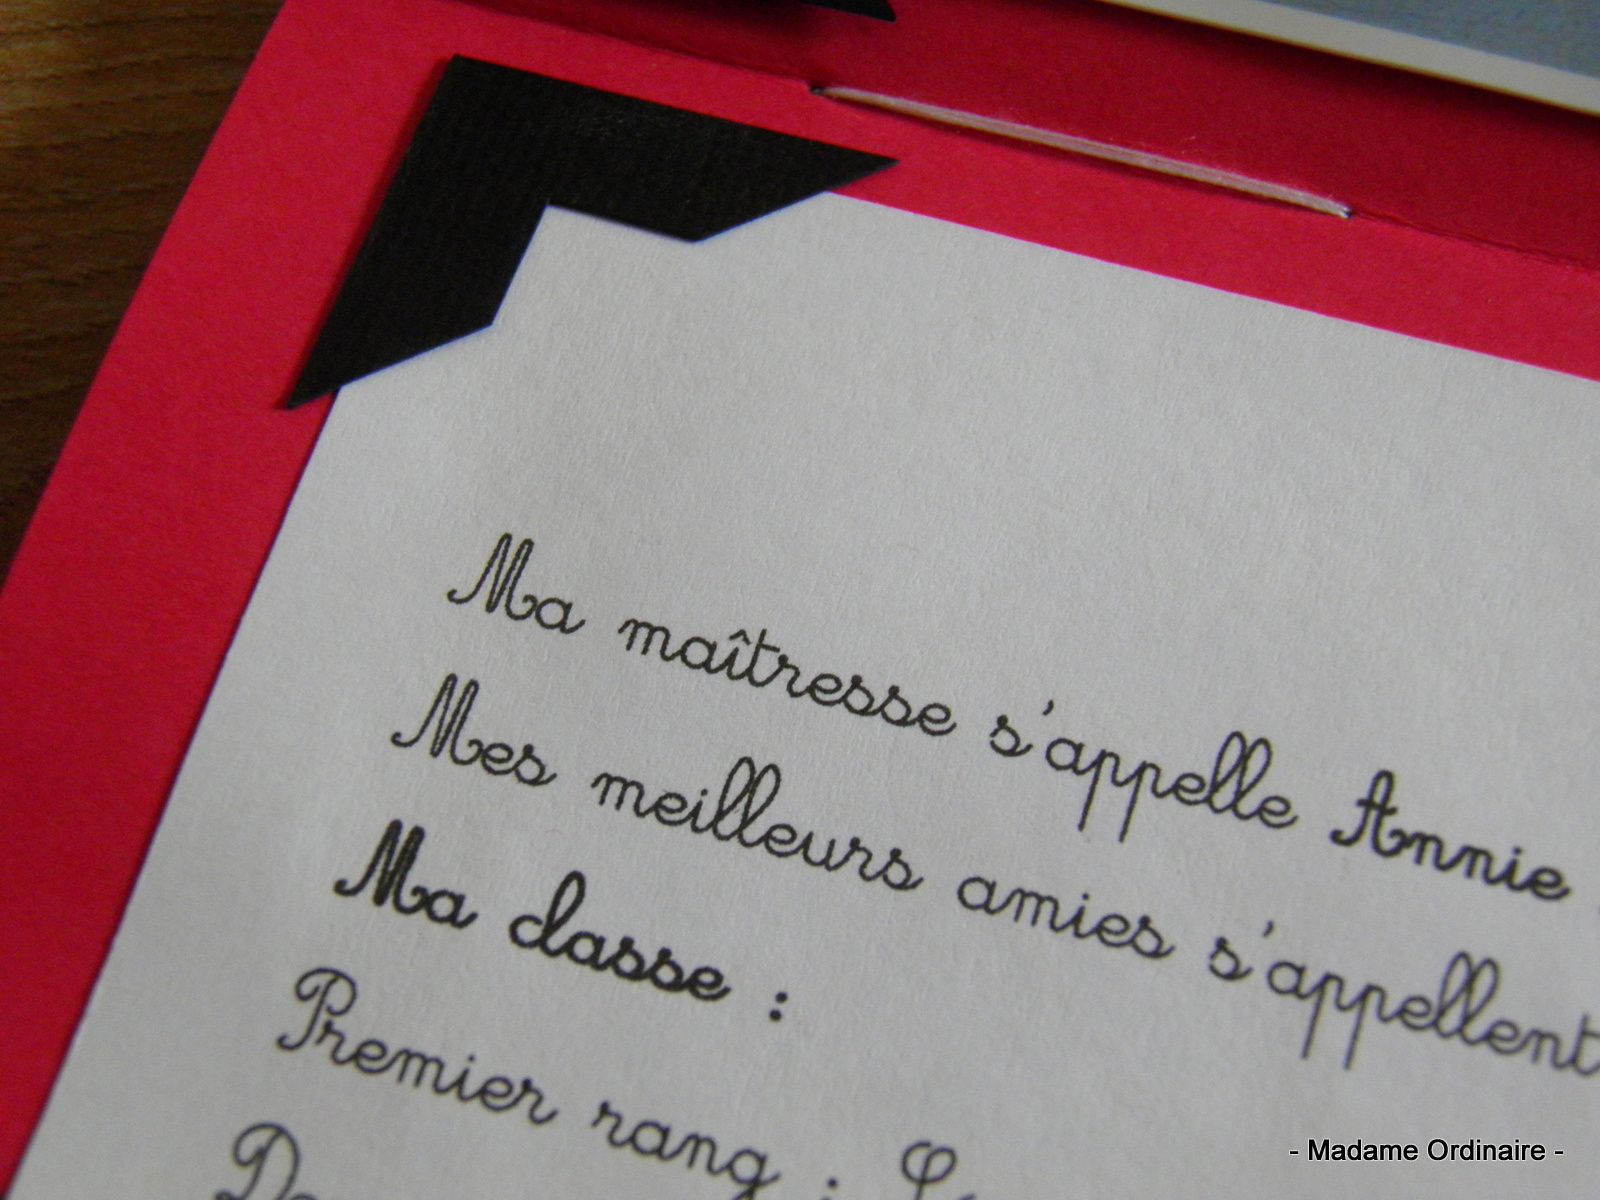 Ma maîtresse s'appelle Annie
Mes meilleurs amies s'appellent
Ma classe :
Premier rang :
- Madame Ordinaire -